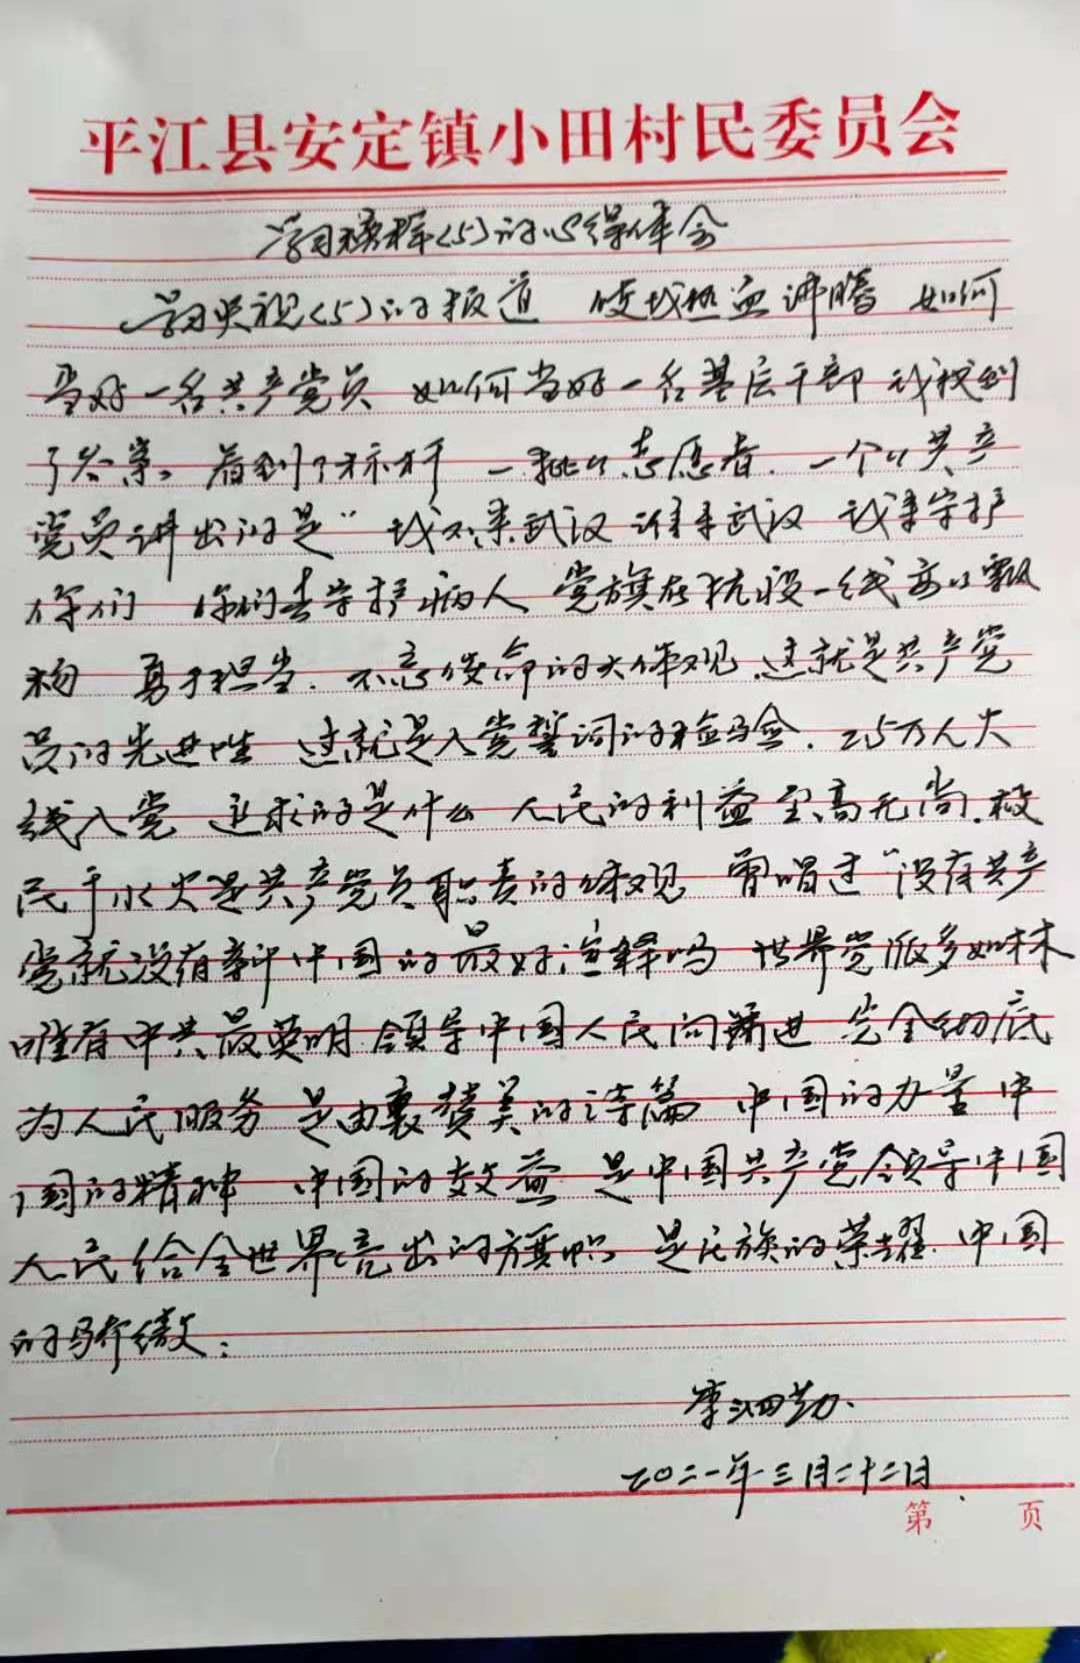 平江县安定镇小田村民委员会
学习榜样(5)的心得体会
学习央视(5)的报道 使我热血沸腾 如何
当好一名共产党员 如何当好一名基层干部 我找到
了答案。看到了标杆 一批批志愿者. 一个个共产
党员讲出的是“我不来武汉 谁来武汉 我来守护
你们 你们去守护病人 党旗在抗役一线高高飘
杨 勇于担当. 不忘使命的大体观.这就是共产党
员的先进性 这就是入党誓词的检验. 25万人火
线入党 追求的是什么 人民的利益至高无尚.救
民于水火是共产党员职责的体观 曾唱过“没有共产
党就没有新中国的最好渲释吗 世界党派多如林
唯有中共最英明 领导中国人民向前进 完全彻底
为人民服务 是由衷赞美的诗篇 中国的力量 中
国的精神 中国的效益 是中国共产党领导中国
人民给全世界亮出的旗帜 是民族的荣耀. 中国
的骄傲:
李
二0二一年三月二十二日
第 页